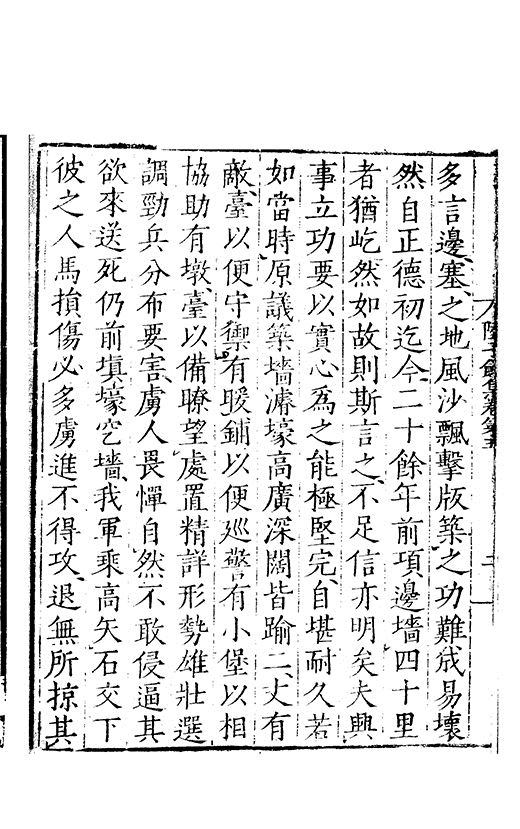 多言邊塞之地風沙飄擊版築之功難成易壞
然自正德初迄今二十餘年前項邊墻四十里
者猶屹然如故則斯言之不足信亦明矣夫興
事立功要以實心為之能極堅完自堪耐久若
如當時原議築墻濬壕高廣深闊皆踰二丈有
敵臺以便守禦有暖鋪以便廵警有小堡以相
協助有墩臺以備瞭望處置精詳形勢雄壯選
調勁兵分布要害虜人畏憚自然不敢侵逼其
欲來送死仍前填壕空墻我軍乘高矢石交下
彼之人馬損傷必多虜進不得攻退無所掠其